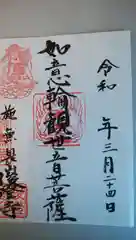 令和 年三月二十四日
如意輪観世音菩薩
施無畏寺